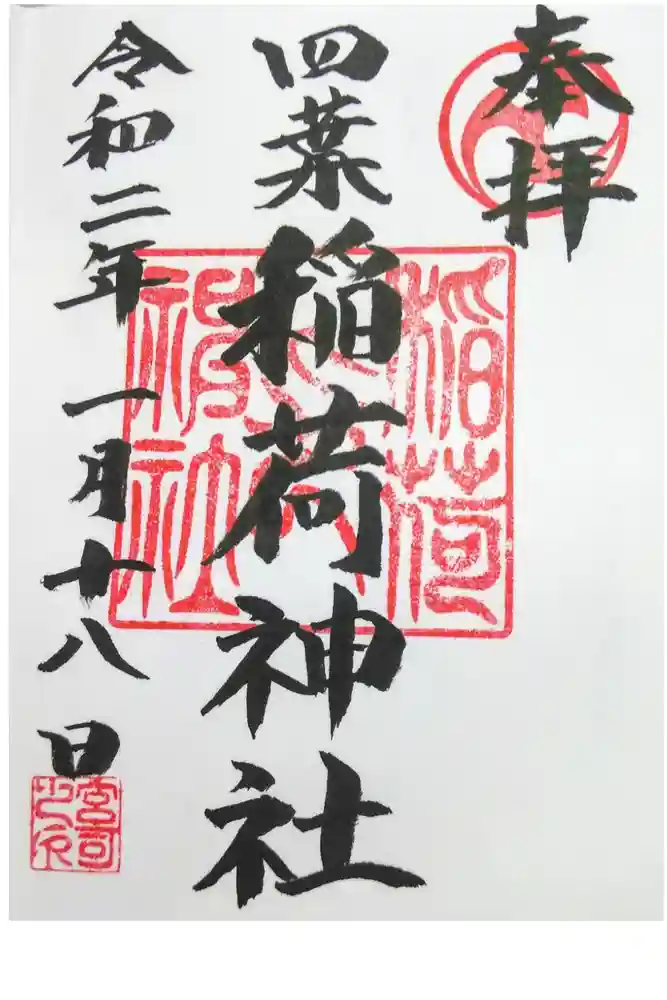 奉拝
四葉稲荷神社
令和二年一月十八日
稲荷
神社
宮司